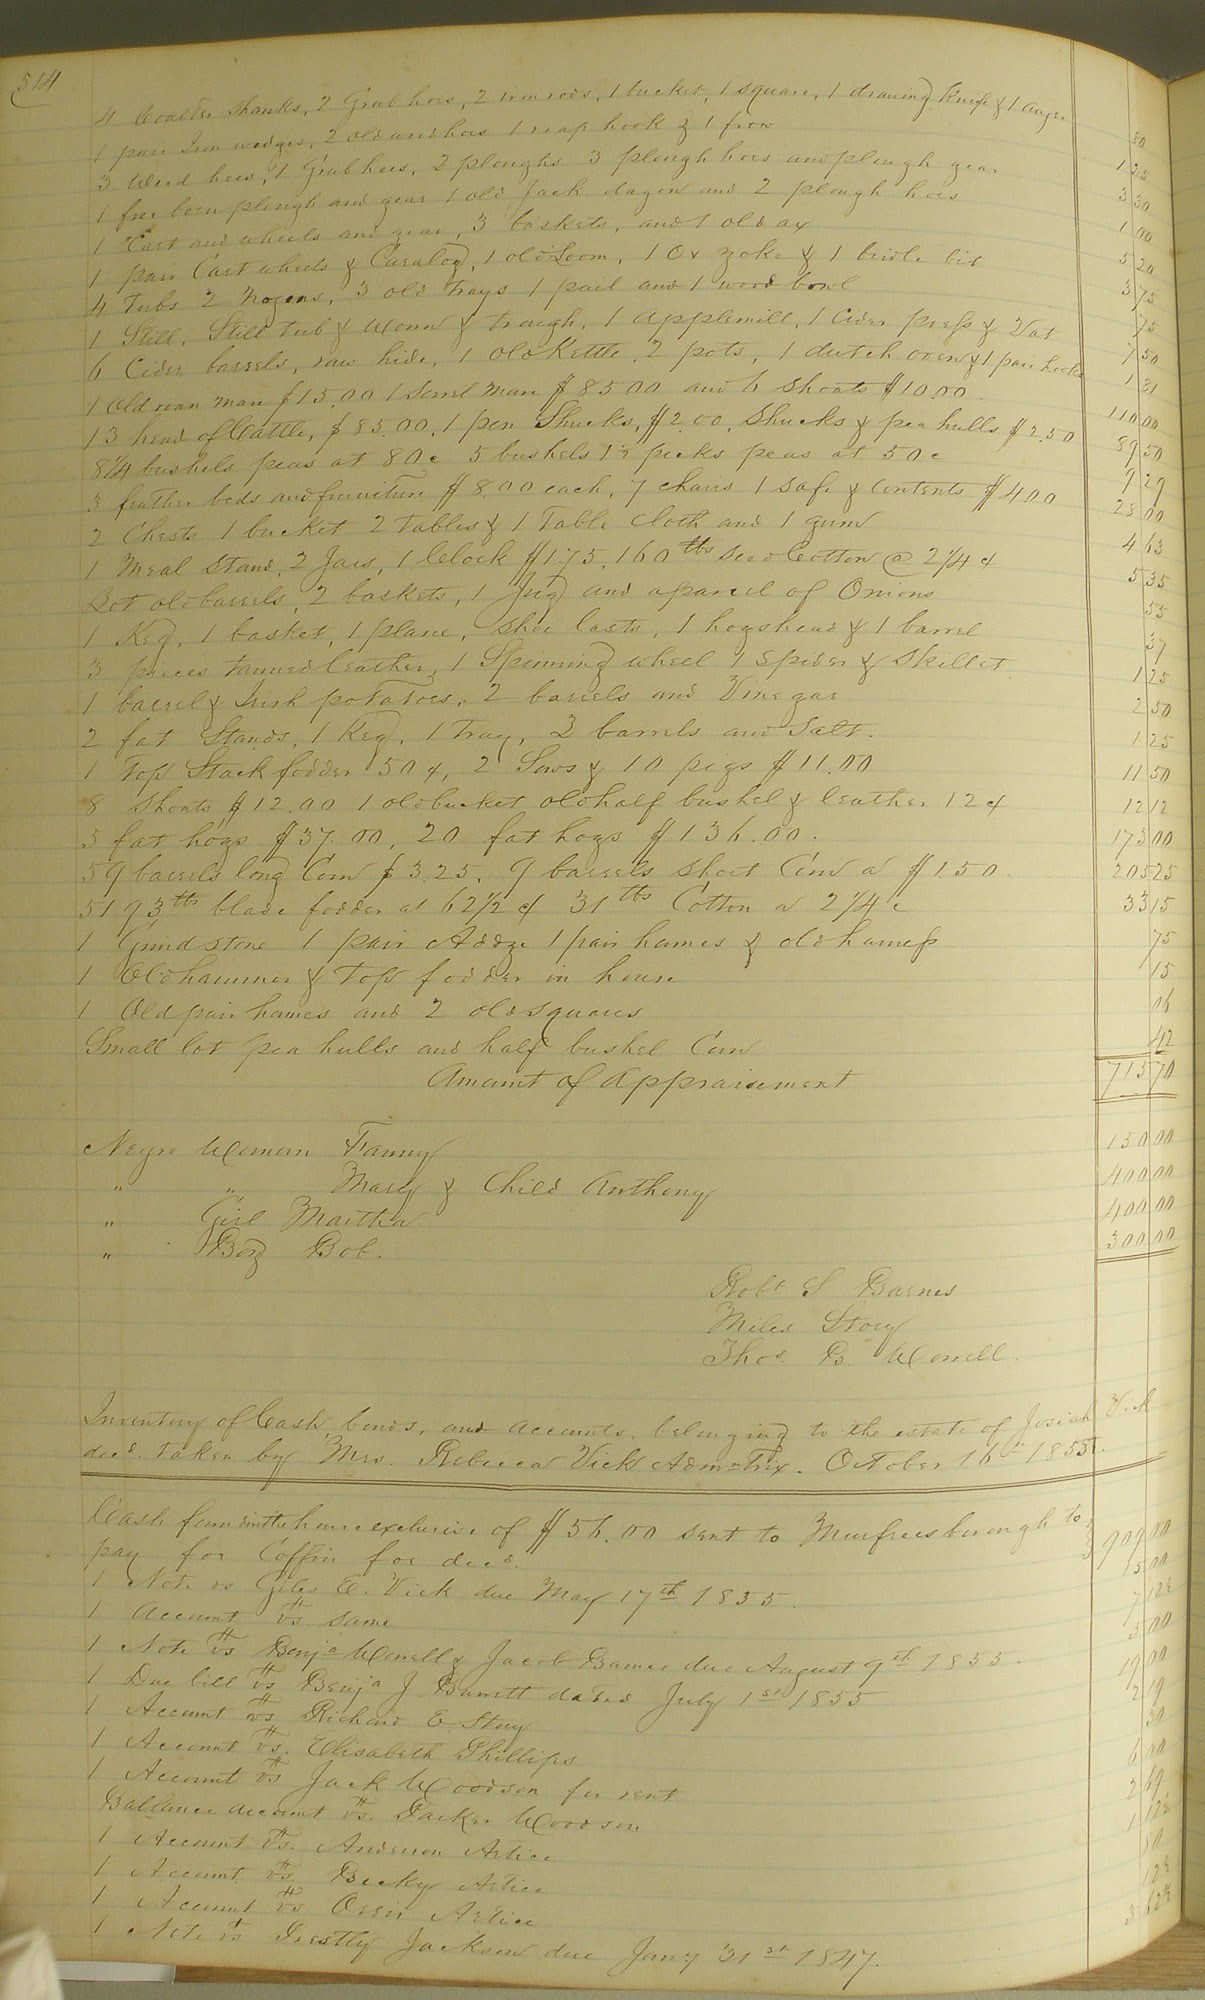 514
4 Coulter Shanks, 2 Grub hoes, 2 iron rods, 1 bucket, 1 square, 1 drawing knife & 1 auger 80
1 pair Iron wedges, 2 old weed hoes 1 reap hook & 1 frow 1 25
3 Weed hoes, 1 Grub hoe, 2 ploughs 3 plough hoes and plough gear 3 30
1 free born plough and gear 1 old Jack dagon and 2 plough hoes 1 00
1 Cart and wheels and gear, 3 baskets, and 1 old ax 5 20
1 pair Cart wheels & Caralog, 1 old Loom, 1 Ox yoke & 1 bridle bit 3 75
4 Tubs 2 Nogens, 3 old Trays 1 pail and 1 wood bowl 75
1 Still, Still tub & Worm & trough, 1 applemill, 1 Cider press & Vat 7 50
6 Cider barrels, raw hide, 1 old Kettle, 2 pots, 1 dutch oven & 1 pair hooks 1 31
1 Old roan mare $15.00 1 Sorrel mare $85.00 and 6 Shoats $10.00. 110 00
13 head of Cattle, $85.00, 1 pen Shucks, $2.00, Shucks & pea hulls $2.50 89 50
8 1/4 bushels peas at 80c 5 bushels 1 1/2 pecks peas at 50c 9 29
3 feather beds and furniture $8.00 each, 7 chairs 1 safe & contents $4.00 28 00
2 Chests 1 bucket 2 Tables & 1 Table cloth and 1 gun 4 63
1 Meal Stand, 2 Jars, 1 Clock $1.75, 160 lbs seed Cotton @ 2 1/4 ¢ 5 35
Lot old barrels, 2 baskets, 1 Jug and a parcel of Onions 55
1 Keg, 1 basket, 1 plane, shoe lasts, 1 hogshead & 1 barrel 37
3 pieces tanned leather, 1 Spinning wheel 1 Spider & Skillet 1 25
1 barrel & Irish potatoes, 2 barrels and Vinegar 2 50
2 fat Stands, 1 Keg, 1 Tray, 2 barrels and Salt. 1 25
1 Top Stack fodder 50¢, 2 Sows & 10 pigs $11.00 11 50
8 Shoats $12.00 1 old bucket old half bushel & leather 12¢ 12 12
5 fat hogs $37.00, 20 fat hogs $136.00. 173 00
59 barrels long Corn $3.25, 9 barrels short Corn a $1.50. 205 25
5193 lbs blade fodder at 62 1/2 ¢ 31 lbs Cotton a 2 1/4 c 33 15
1 Grind stone 1 pair Addze 1 pair hames & old harness 75
1 Old hammer & Top fodder in house 15
1 Old pair hames and 2 old squares 06
Small lot pea hulls and half bushel Corn 42
Amount of Appraisement 713 70
Negro Woman Fanny 150 00
" " Mary & Child Anthony 400 00
" Girl Martha 400 00
" Boy Bob. 300 00
Robt S Barnes
Miles Story
Thos. B. Worrell.
Inventory of Cash, bonds, and accounts, belonging to the estate of Josiah Vick
decd. taken by Mrs. Rebecca Vick Admatrix. October 16th 1855.
Cash found in the house exclusive of $56.00 sent to Murfreesborough to
pay for Coffin for decd. 909 00
1 Note vs Giles E. Vick due May 17th 1855. 15 00
1 Account vs same 7 12½
1 Note vs Benja Worrell & Jacob Barnes due August 9th 1855. 5 00
1 Due bill vs Benja J. Barrett dated July 1st 1855 19 00
1 Account vs Richard E. Story 2 19
1 Account vs. Elisabeth Phillips 30
1 Account vs Jack Woodson for rent 6 00
Ballance account vs. Parker Woodson 2 69
1 Account vs. Anderson Artice 1 12½
1 Account vs. Becky Artice 50
1 Account vs Artice 12½
1 Note vs Jackson due Jany 31st 1847. 3 62½